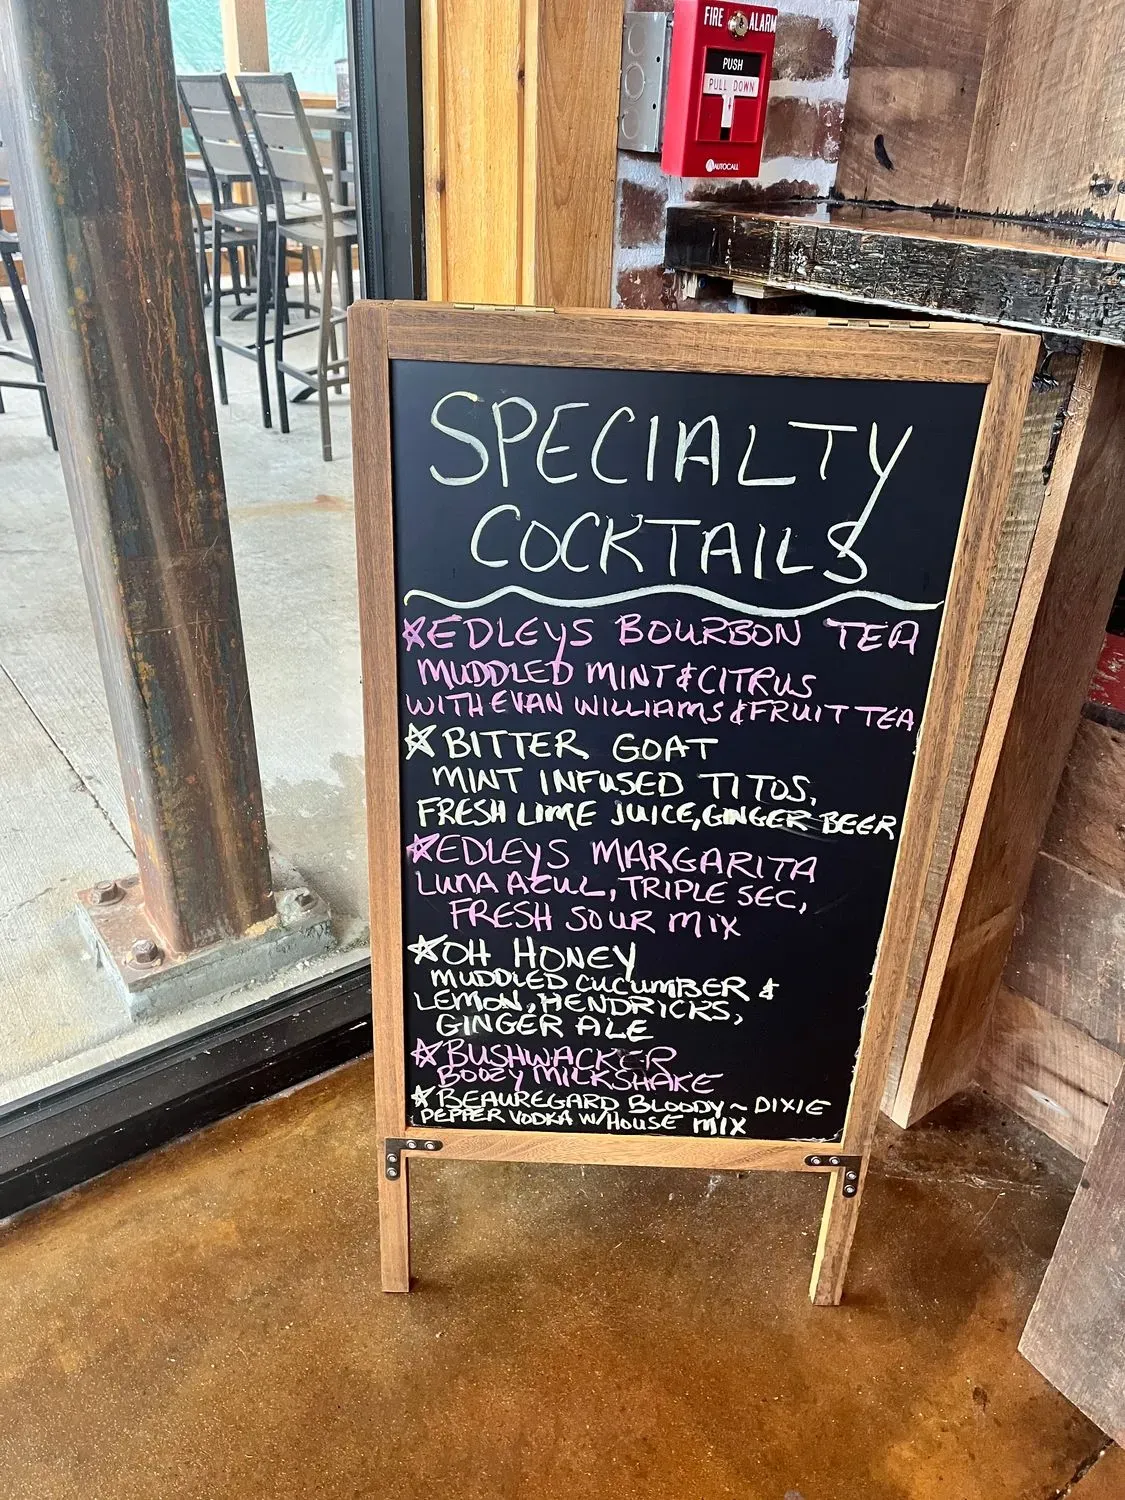 FIRE ALARM
PUSH
PULL DOWN
AUTOCALL
SPECIALTY
COCKTAILS
EDLEYS BOURBON TEA
MUDDLED MINT & CITRUS
WITH EVAN WILLIAMS & FRUIT TEA
BITTER GOAT
MINT INFUSED TITOS,
FRESH LIME JUICE, GINGER BEER
EDLEYS MARGARITA
LUNA AZUL, TRIPLE SEC,
FRESH SOUR MIX
OH HONEY
MUDDLED CUCUMBER &
LEMON, HENDRICKS,
GINGER ALE
BUSHWACKER
BOOZY MILKSHAKE
BEAUREGARD BLOODY ~ DIXIE
PEPPER VODKA W/HOUSE MIX